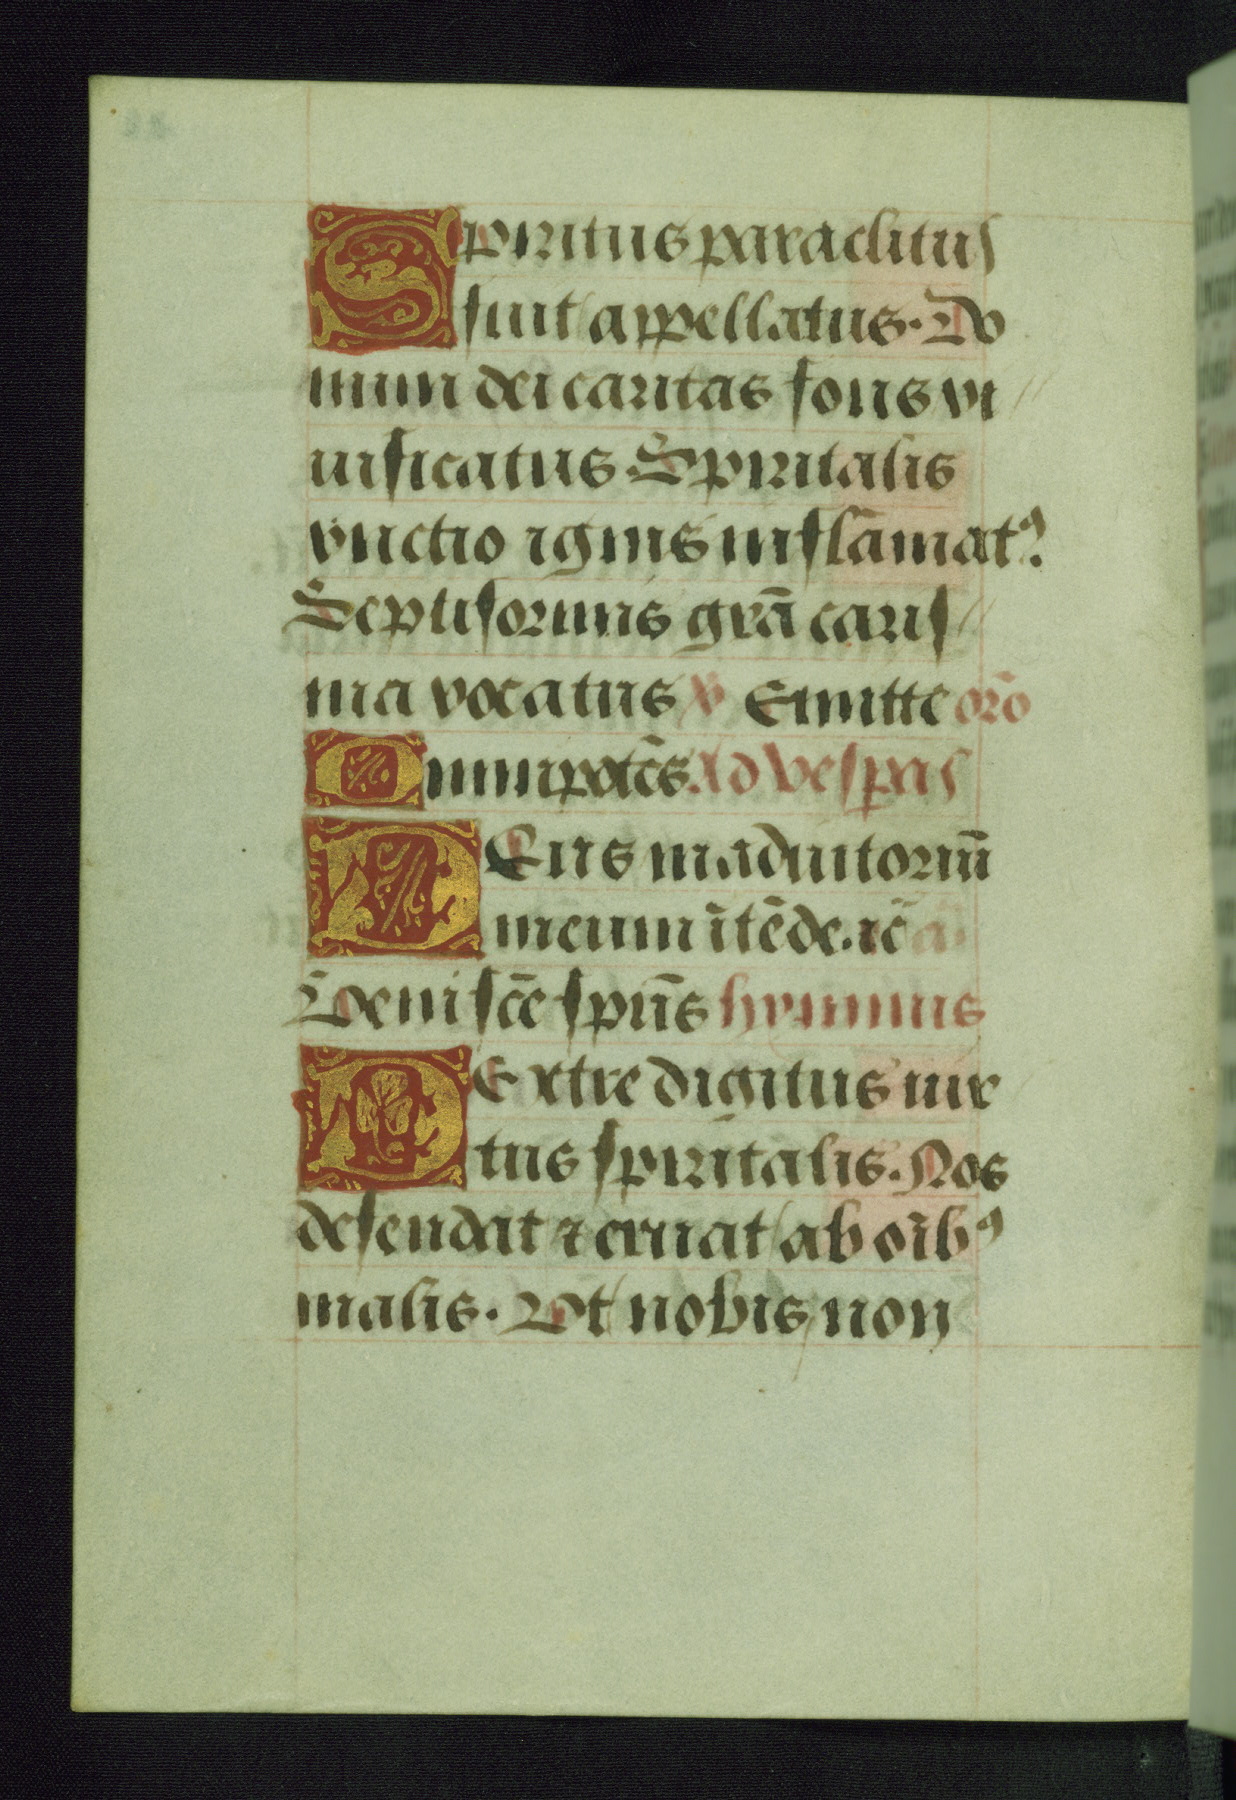 Spiritus paraclitus
fuit appellatus. Do
num dei caritas fons vi
uificatus Spiritalis
vnctio ignis inflāmatꝰ.
Septiformis grā caris
ma vocatus ℣ Emitte orō
Omnipotēs. Ad vesperas
DEus in adiutoriū
meum ītēde. ⁊c̄ añ
Veni sc̄e spūs hymnus
DExtre digitus uir
tus spiritalis. Nos
defendat ⁊ eruat ab oībꝰ
malis. Vt nobis non